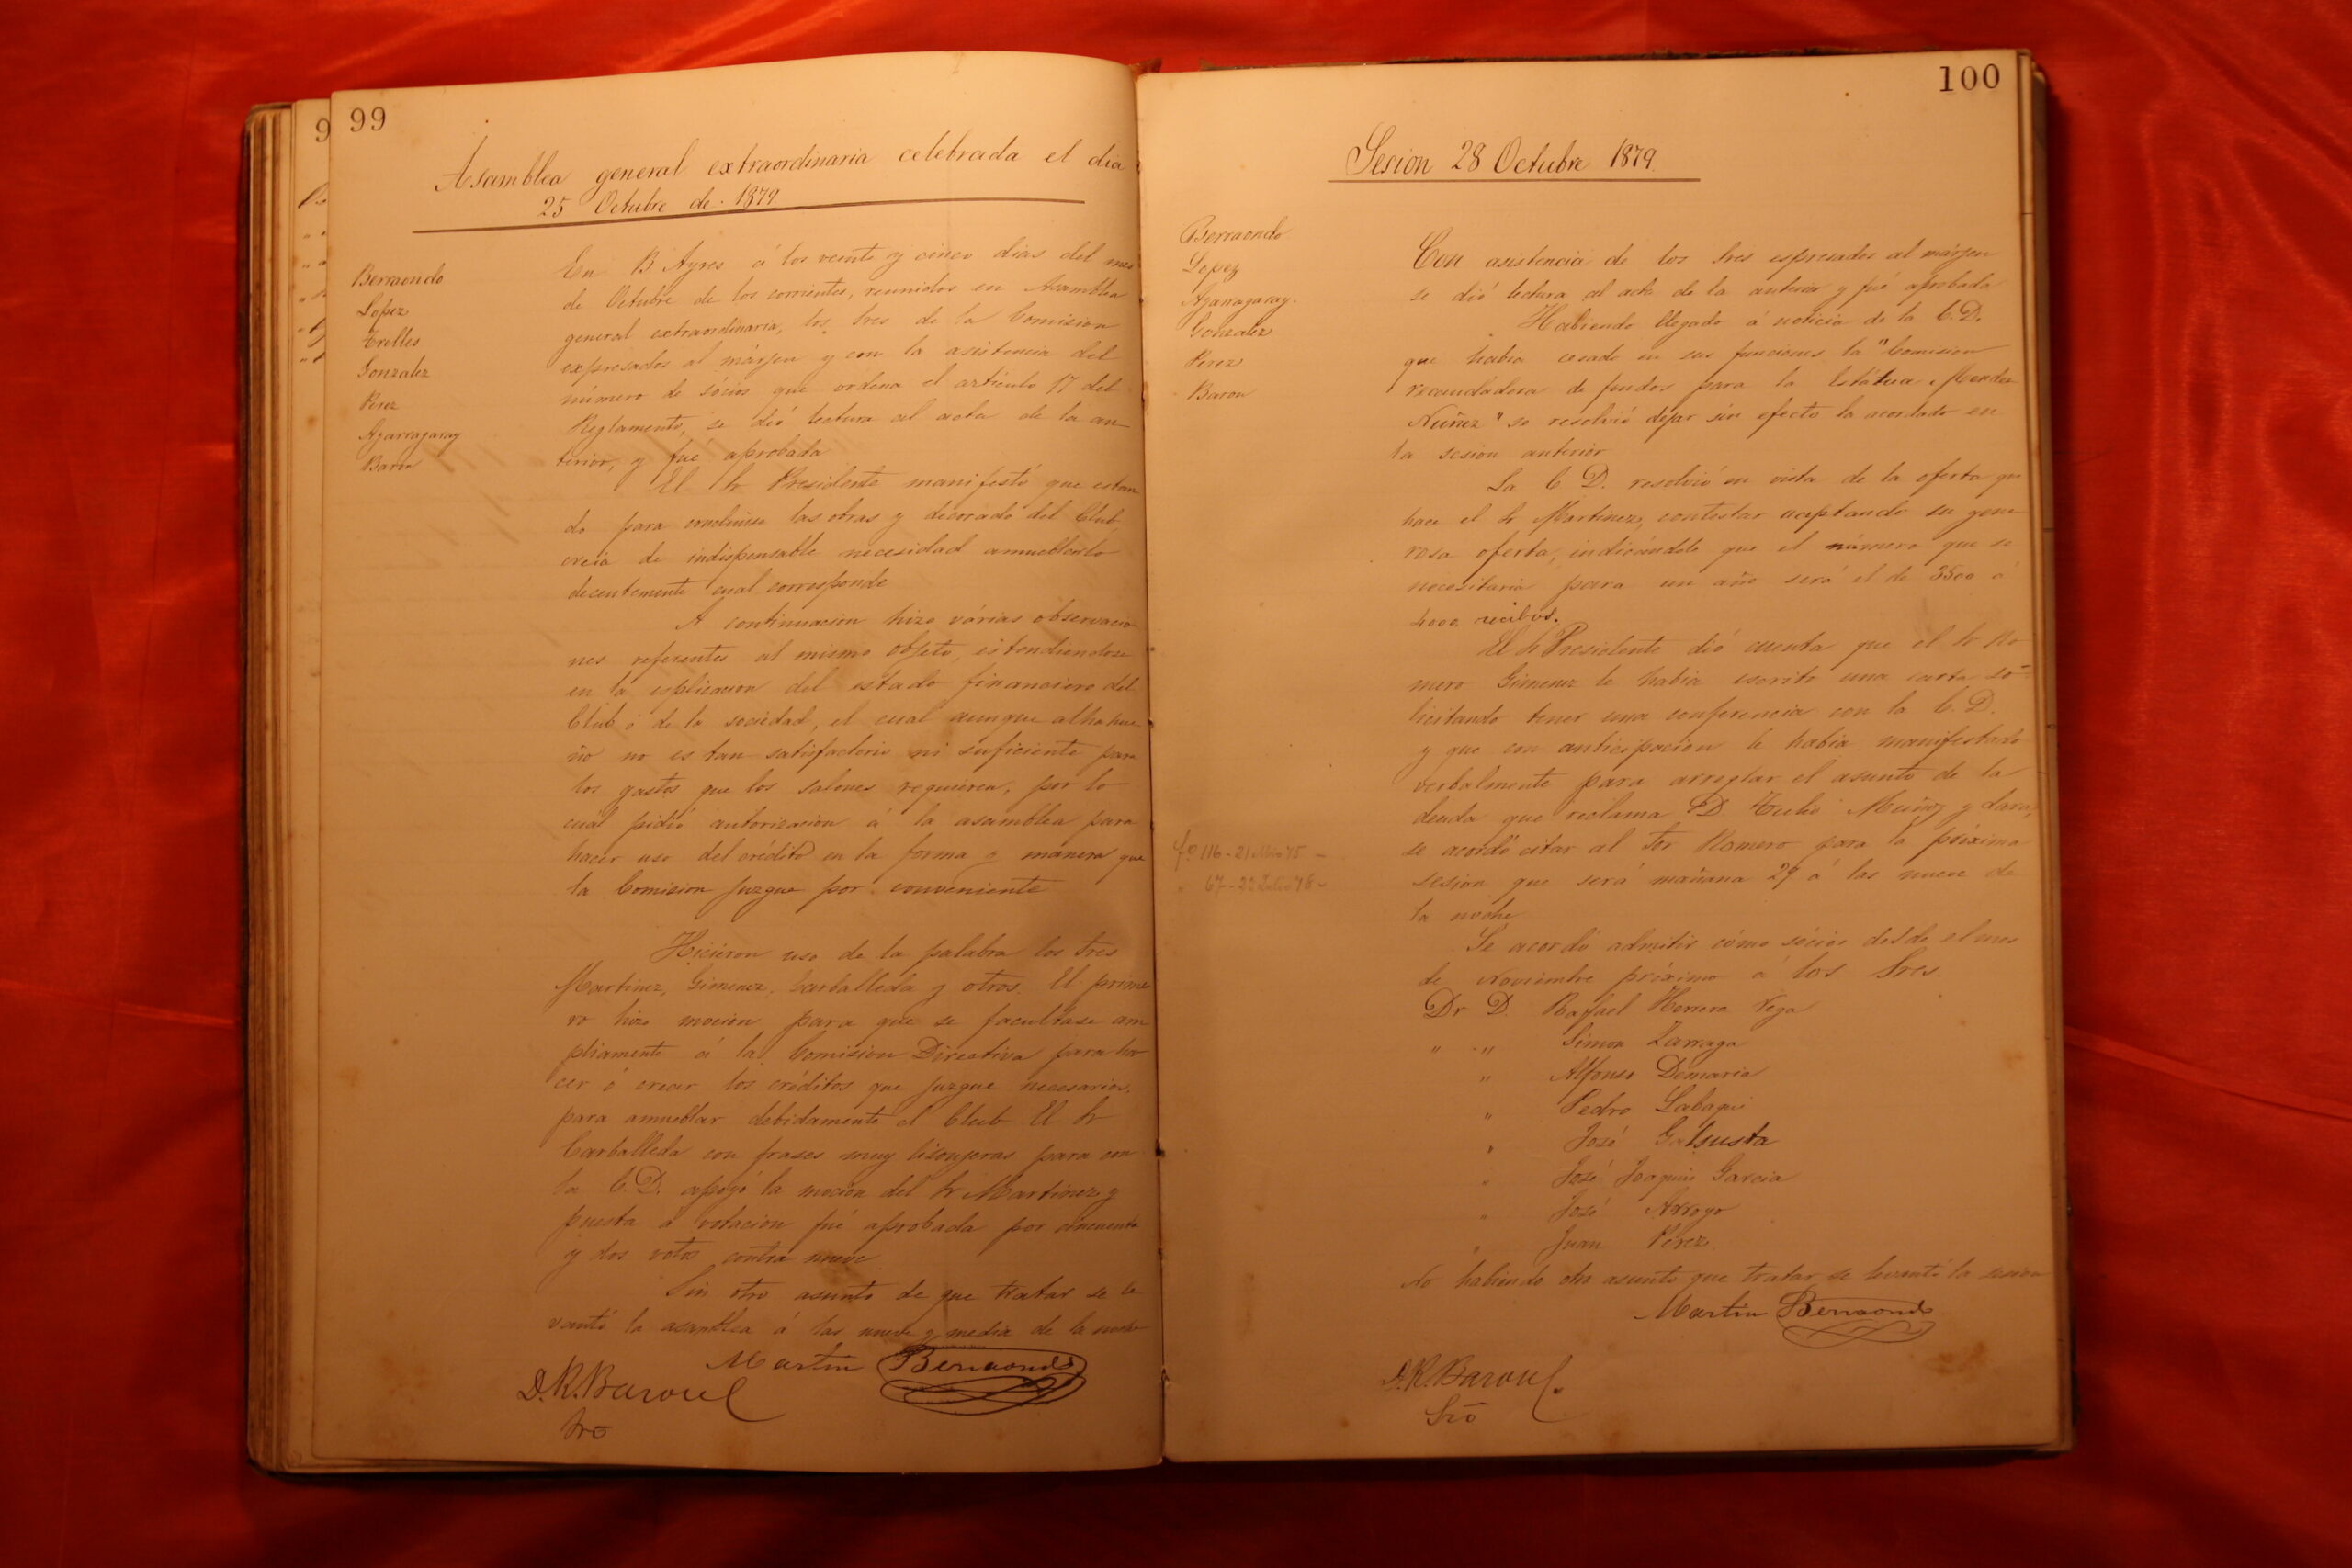 99
Asamblea general extraordinaria celebrada el dia
25 Octubre de 1879
Berraondo
Lopez
Trelles
Gonzalez
Perez
Azarragaray
Baron
En B Ayres á los veinte y cinco dias del mes
de Octubre de los corrientes, reunidos en Asamblea
general extraordinaria, los Sres de la Comision
expresados al márjen y con la asistencia del
número de sócios que ordena el artículo 17 del
Reglamento, se dió lectura al acta de la an
terior, y fué aprobada
El Sr Presidente manifestó que estan
do para concluirse las obras y decorado del Club
creia de indispensable necesidad amueblarlo
decentemente cual corresponde
A continuacion hizo várias observacio
nes referentes al mismo objeto, estendiendose
en la esplicacion del estado financiero del
Club ó de la sociedad, el cual aunque alhague
ño no es tan satisfactorio ni suficiente para
los gastos que los salones requieren, por lo
cual pidió autorizacion á la asamblea para
hacer uso del crédito en la forma y manera que
la Comision juzgue por conveniente
Hicieron uso de la palabra los Sres
Martinez, Gimenez, Carballeda y otros. El prime
ro hizo mocion para que se facultase am
pliamente á la Comision Directiva para ha
cer ó crear los créditos que juzgue necesarios
para amueblar debidamente el Club El Sr
Carballeda con frases muy lisonjeras para con
la C.D. apoyó la mocion del Sr Martinez y
puesta á votacion fué aprobada por cincuenta
y dos votos contra nueve
Sin otro asunto de que tratar se le
vantó la asamblea á las nueve y media de la noche
Martin Berraondo
D.R. Baroul
Srō
100
Sesion 28 Octubre 1879.
Berraondo
Lopez
Azarragaray.
Gonzalez
Perez
Baron
Con asistencia de los Sres espresados al márjen
se dió lectura al acta de la anterior y fué aprobada
Habiendo llegado á noticia de la C.D.
que habia cesado en sus funciones la "Comision
recaudadora de fondos para la Estátua Mendez
Nuñez" se resolvió dejar sin efecto lo acordado en
la sesion anterior
La C D. resolvió en vista de la oferta que
hace el Sr Martinez, contestar aceptando su gene
rosa oferta, indicándole que el número que se
necesitaria para un año será el de 3500 á
4000 recibos.
El Sr Presidente dió cuenta que el Sr Ro
mero Gimenez le habia escrito una carta so=
licitando tener una conferencia con la C.D.
y que con anticipacion le habia manifestado
verbalmente para arreglar el asunto de la
deuda que reclama D. Muñoz y
se acordó citar al Sor Romero para la próxima
sesion que será mañana 29 á las nueve de
la noche
fº 116 - 21 75 -
" 67 - 22 78 -
Se acordó admitir cómo sócios desde el mes
de Noviembre próximo á los Sres.
Dr D. Rafael Herrera Vega
" " Simon Zarraga
" Alfonso Demaria
" Pedro Labaqui
" José Galsusta
" José Joaquin Garcia
" José Arroyo
" Juan Perez
No habiendo otro asunto que tratar se levantó la sesion
Martin Berraondo
D.R. Baroul.
Srō